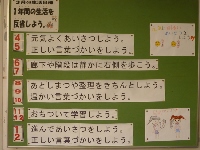 3月の生活目標
1年間の生活を
反省しよう。
4
5
元気よくあいさつしよう。
正しい言葉づかいをしよう。
6
7
廊下や階段は静かに右側を歩こう。
8
9
10
あとしまつや整理をきちんとしよう。
温かい言葉づかいをしよう。
11
12
おちついて学習しよう。
1
2
進んであいさつをしよう。
正しい言葉づかいをしよう。